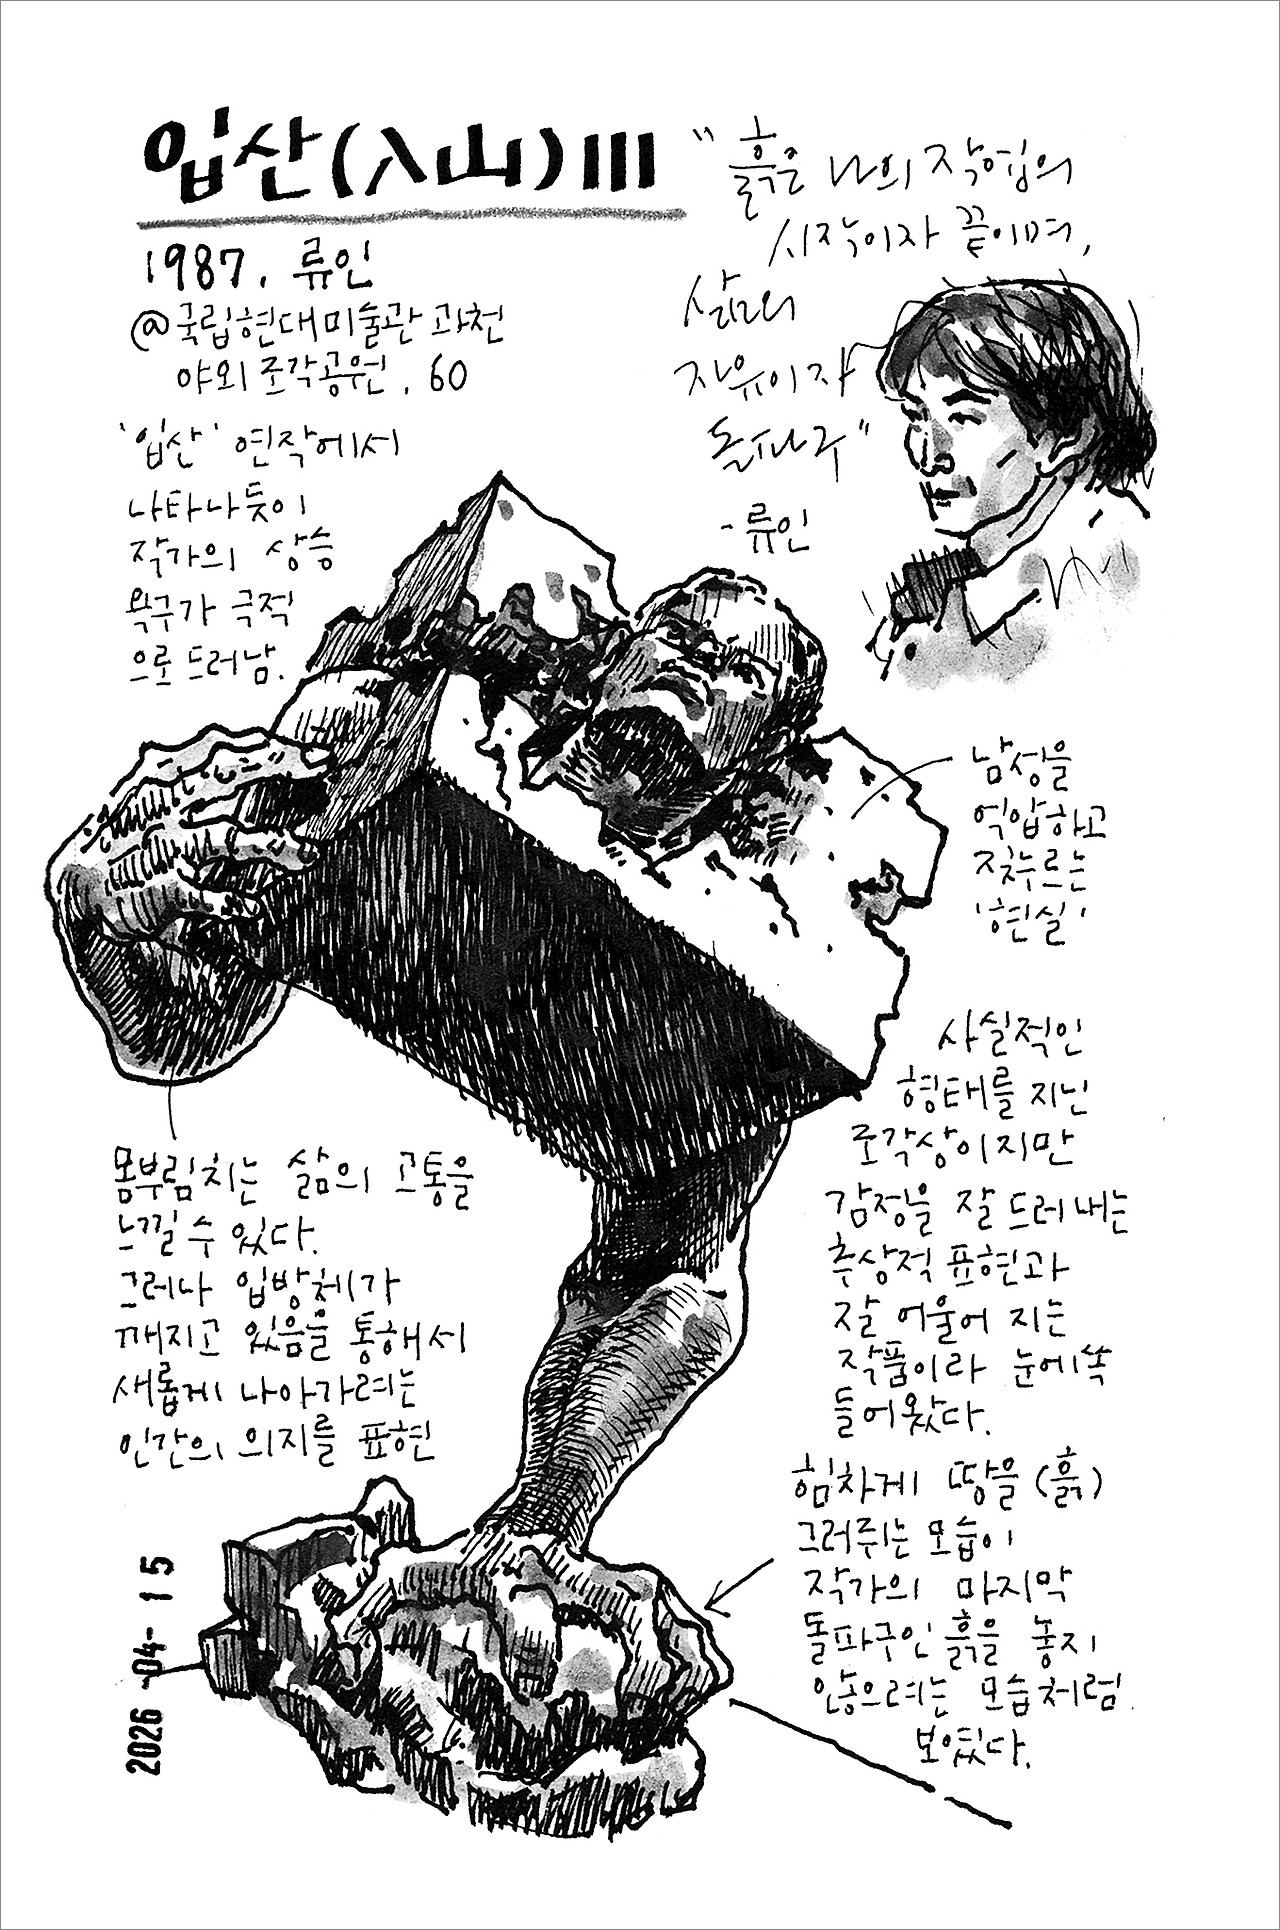 입산(入山)III
1987. 류인
@국립현대미술관 과천
야외조각공원. 60
'입산' 연작에서
나타나듯이
작가의 상승
욕구가 극적
으로 드러남.
"흙은 나의 작업의
시작이자 끝이며,
삶의
자유이자
돌파구"
-류인
남성을
억압하고
짓누르는
'현실'
사실적인
형태를 지닌
조각상이지만
감정을 잘 드러내는
추상적 표현과
잘 어울어 지는
작품이라 눈에 쏙
들어왔다.
몸부림치는 삶의 고통을
느낄 수 있다.
그러나 입방체가
깨지고 있음을 통해서
새롭게 나아가려는
인간의 의지를 표현
힘차게 땅을(흙)
그러쥐는 모습이
작가의 마지막
돌파구인 흙을 놓지
않으려는 모습처럼
보였다.
2026-04-15